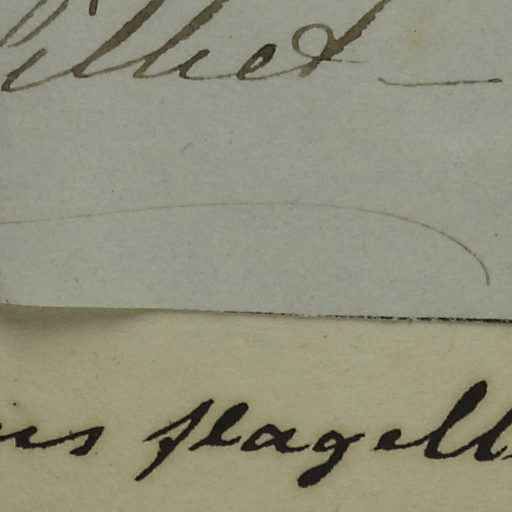 illiet
us flagell